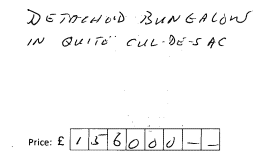 DETACHOD BUNGALOW
IN QUITO CUL-DE-SAC
Price: £ 156000--